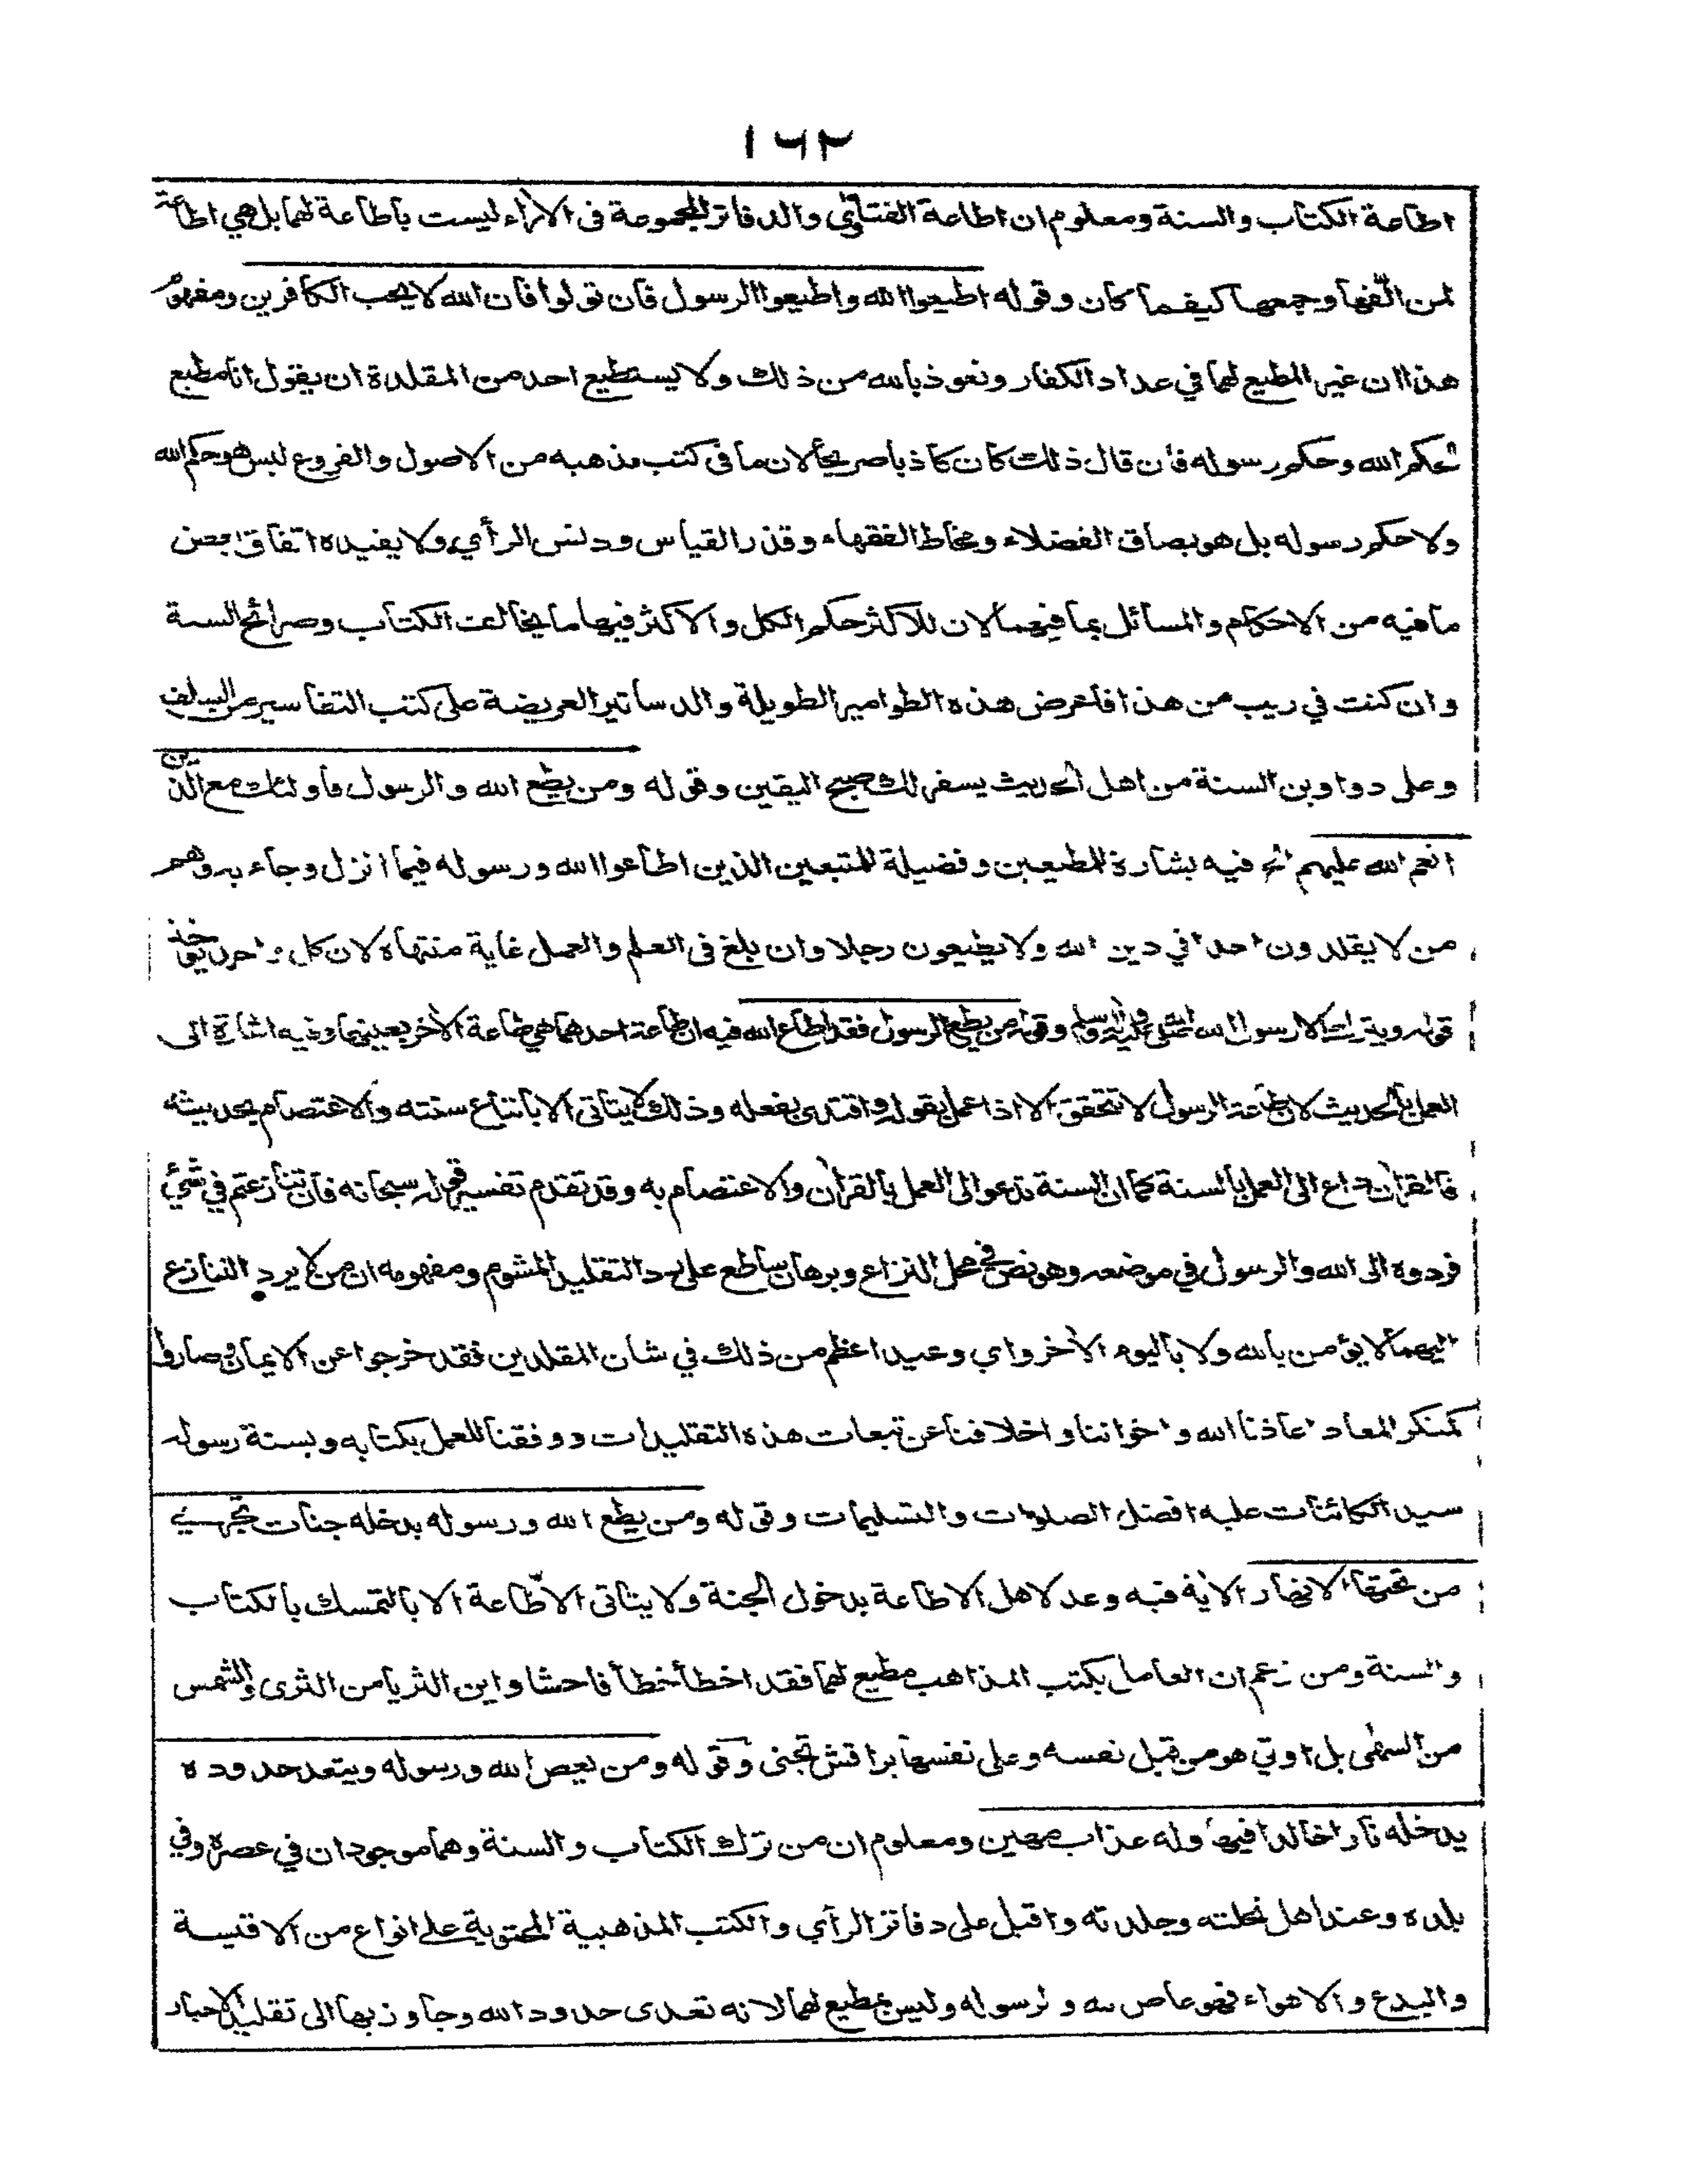 ١٦٢
اطاعة الكتاب والسنة ومعلوم ان اطاعة الفتاوى والدفاتر المجموعة فى الاراء ليست باطاعة لهما بل هي اطاعة
لمن الّفها وجمعها كيفما كان وقوله اطيعوا الله واطيعوا الرسول فان تولوا فان الله لا يحب الكافرين ومفهوم
هذا ان غير المطيع لهما في عداد الكفار ونعوذ بالله من ذلك ولا يستطيع احد من المقلدة ان يقول انا مطيع
لحكم الله وحكم رسوله فان قال ذلك كان كاذبا صريحا لان ما فى كتب مذهبه من الاصول والفروع ليس هو حكم الله
ولا حكم رسوله بل هو بصاق الفضلاء ومخاط الفقهاء وقذر القياس ودنس الرأي ولا يفيده اتفاق بعض
ما فيه من الاحكام والمسائل بما فيهما لان للاكثر حكم الكل والاكثر فيها ما يخالف الكتاب وصرائح السنة
وان كنت في ريب من هذا فاعرض هذه الطوامير الطويلة والدساتير العريضة على كتب التفاسير من السلف
وعلى دواوين السنة من اهل الحديث يسفر لك صبح اليقين وقوله ومن يطع الله والرسول فاولئك مع الذين
انعم الله عليهم الخ فيه بشارة للمطيعين وفضيلة للمتبعين الذين اطاعوا الله ورسوله فيما انزل وجاء به وهم
من لا يقلدون احدا في دين الله ولا يطيعون رجلا وان بلغ فى العلم والعمل غاية منتهاه لان كل واحد يؤخذ
قوله ويترك الا رسول الله صلى الله عليه وآله وسلم وقوله من يطع الرسول فقد اطاع الله فيه ان طاعة احدهما هي طاعة الآخر بعينها وفيه اشارة الى
العمل بالحديث لان طاعة الرسول لا تتحقق الا اذا عمل بقوله واقتدى بفعله وذلك لا يتاتى الا باتباع سنته والاعتصام بحديثه
فالقرآن داع الى العمل بالسنة كما ان السنة تدعو الى العمل بالقرآن والاعتصام به وقد تقدم تفسير قوله سبحانه فان تنازعتم في شيئ
فردوه الى الله والرسول في موضعه وهو نص في محل النزاع وبرهان ساطع على رد التقليد المشوم ومفهومه ان من لا يرد التنازع
اليهما لا يؤمن بالله ولا باليوم الآخر واي وعيد اعظم من ذلك في شان المقلدين فقد خرجوا عن الايمان وصاروا
كمنكر المعاد اعاذنا الله واخواننا واخلافنا عن تبعات هذه التقليدات ووفقنا للعمل بكتابه وبسنة رسوله
سيد الكائنات عليه افضل الصلوات والتسليمات وقوله ومن يطع الله ورسوله يدخله جنات تجري
من تحتها الانهار الآية فيه وعد لاهل الاطاعة بدخول الجنة ولا يتاتى الاطّاعة الا بالتمسك بالكتاب
والسنة ومن زعم ان العامل بكتب المذاهب مطيع لهما فقد اخطأ خطأ فاحشا واين الثريا من الثرى والشمس
من السهى بل اوتي هو من قبل نفسه وعلى نفسها براقش تجنى وقوله ومن يعص الله ورسوله ويتعد حدوده
يدخله نارا خالدا فيها وله عذاب مهين ومعلوم ان من ترك الكتاب والسنة وهما موجودان في عصره وفي
بلده وعند اهل نحلته وجلدته واقبل على دفاتر الرأي والكتب المذهبية المحتوية على انواع من الاقيسة
والبدع والاهواء فهو عاص لله ولرسوله وليس بمطيع لهما لانه تعدى حدود الله وجاوز بها الى تقليد الاحبار